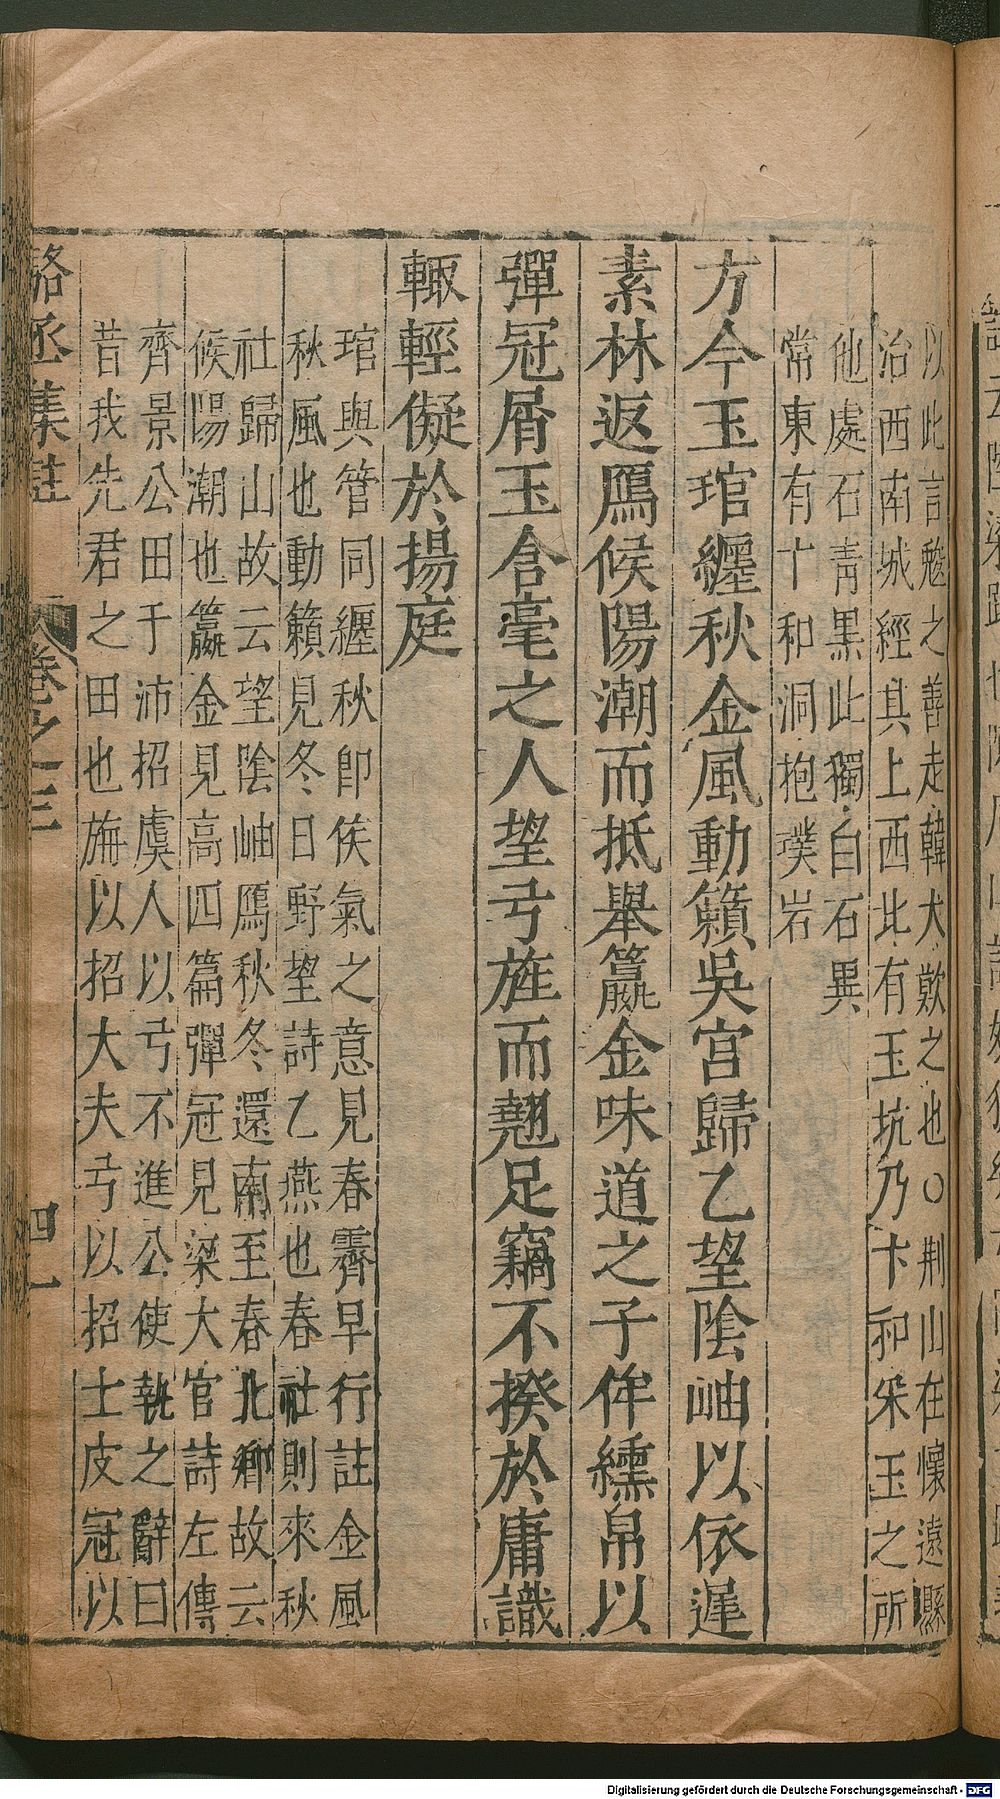 以此言魏之善走韓犬欺之也〇荆山在懷遠縣
治西南城經其上西北有玉坑乃卞和采玉之所
他處石青黒此獨白石異
常東有卞和洞抱璞岩
方今玉琯纒秋金風動籟吳宫歸乙望陰岫以依遲
素林返鴈候陽潮而抵舉籯金味道之子侔纁帛以
彈冠屑玉含毫之人望弓旌而翹足竊不揆於庸識
輙輕儗於揚庭
琯與管同纒秋卽候氣之意見春霽早行註金風
秋風也動籟見冬日野望詩乙燕也春社則來秋
社歸山故云望陰岫鴈秋冬還南至春北鄉故云
候陽潮也籯金見高四篇彈冠見梁大官詩左傳
齊景公田于沛招虞人以弓不進公使執之辭曰
昔我先君之田也旃以招大夫弓以招士皮冠以
駱丞集註 卷之三 四一
Digitalisierung gefördert durch die Deutsche Forschungsgemeinschaft - DFG